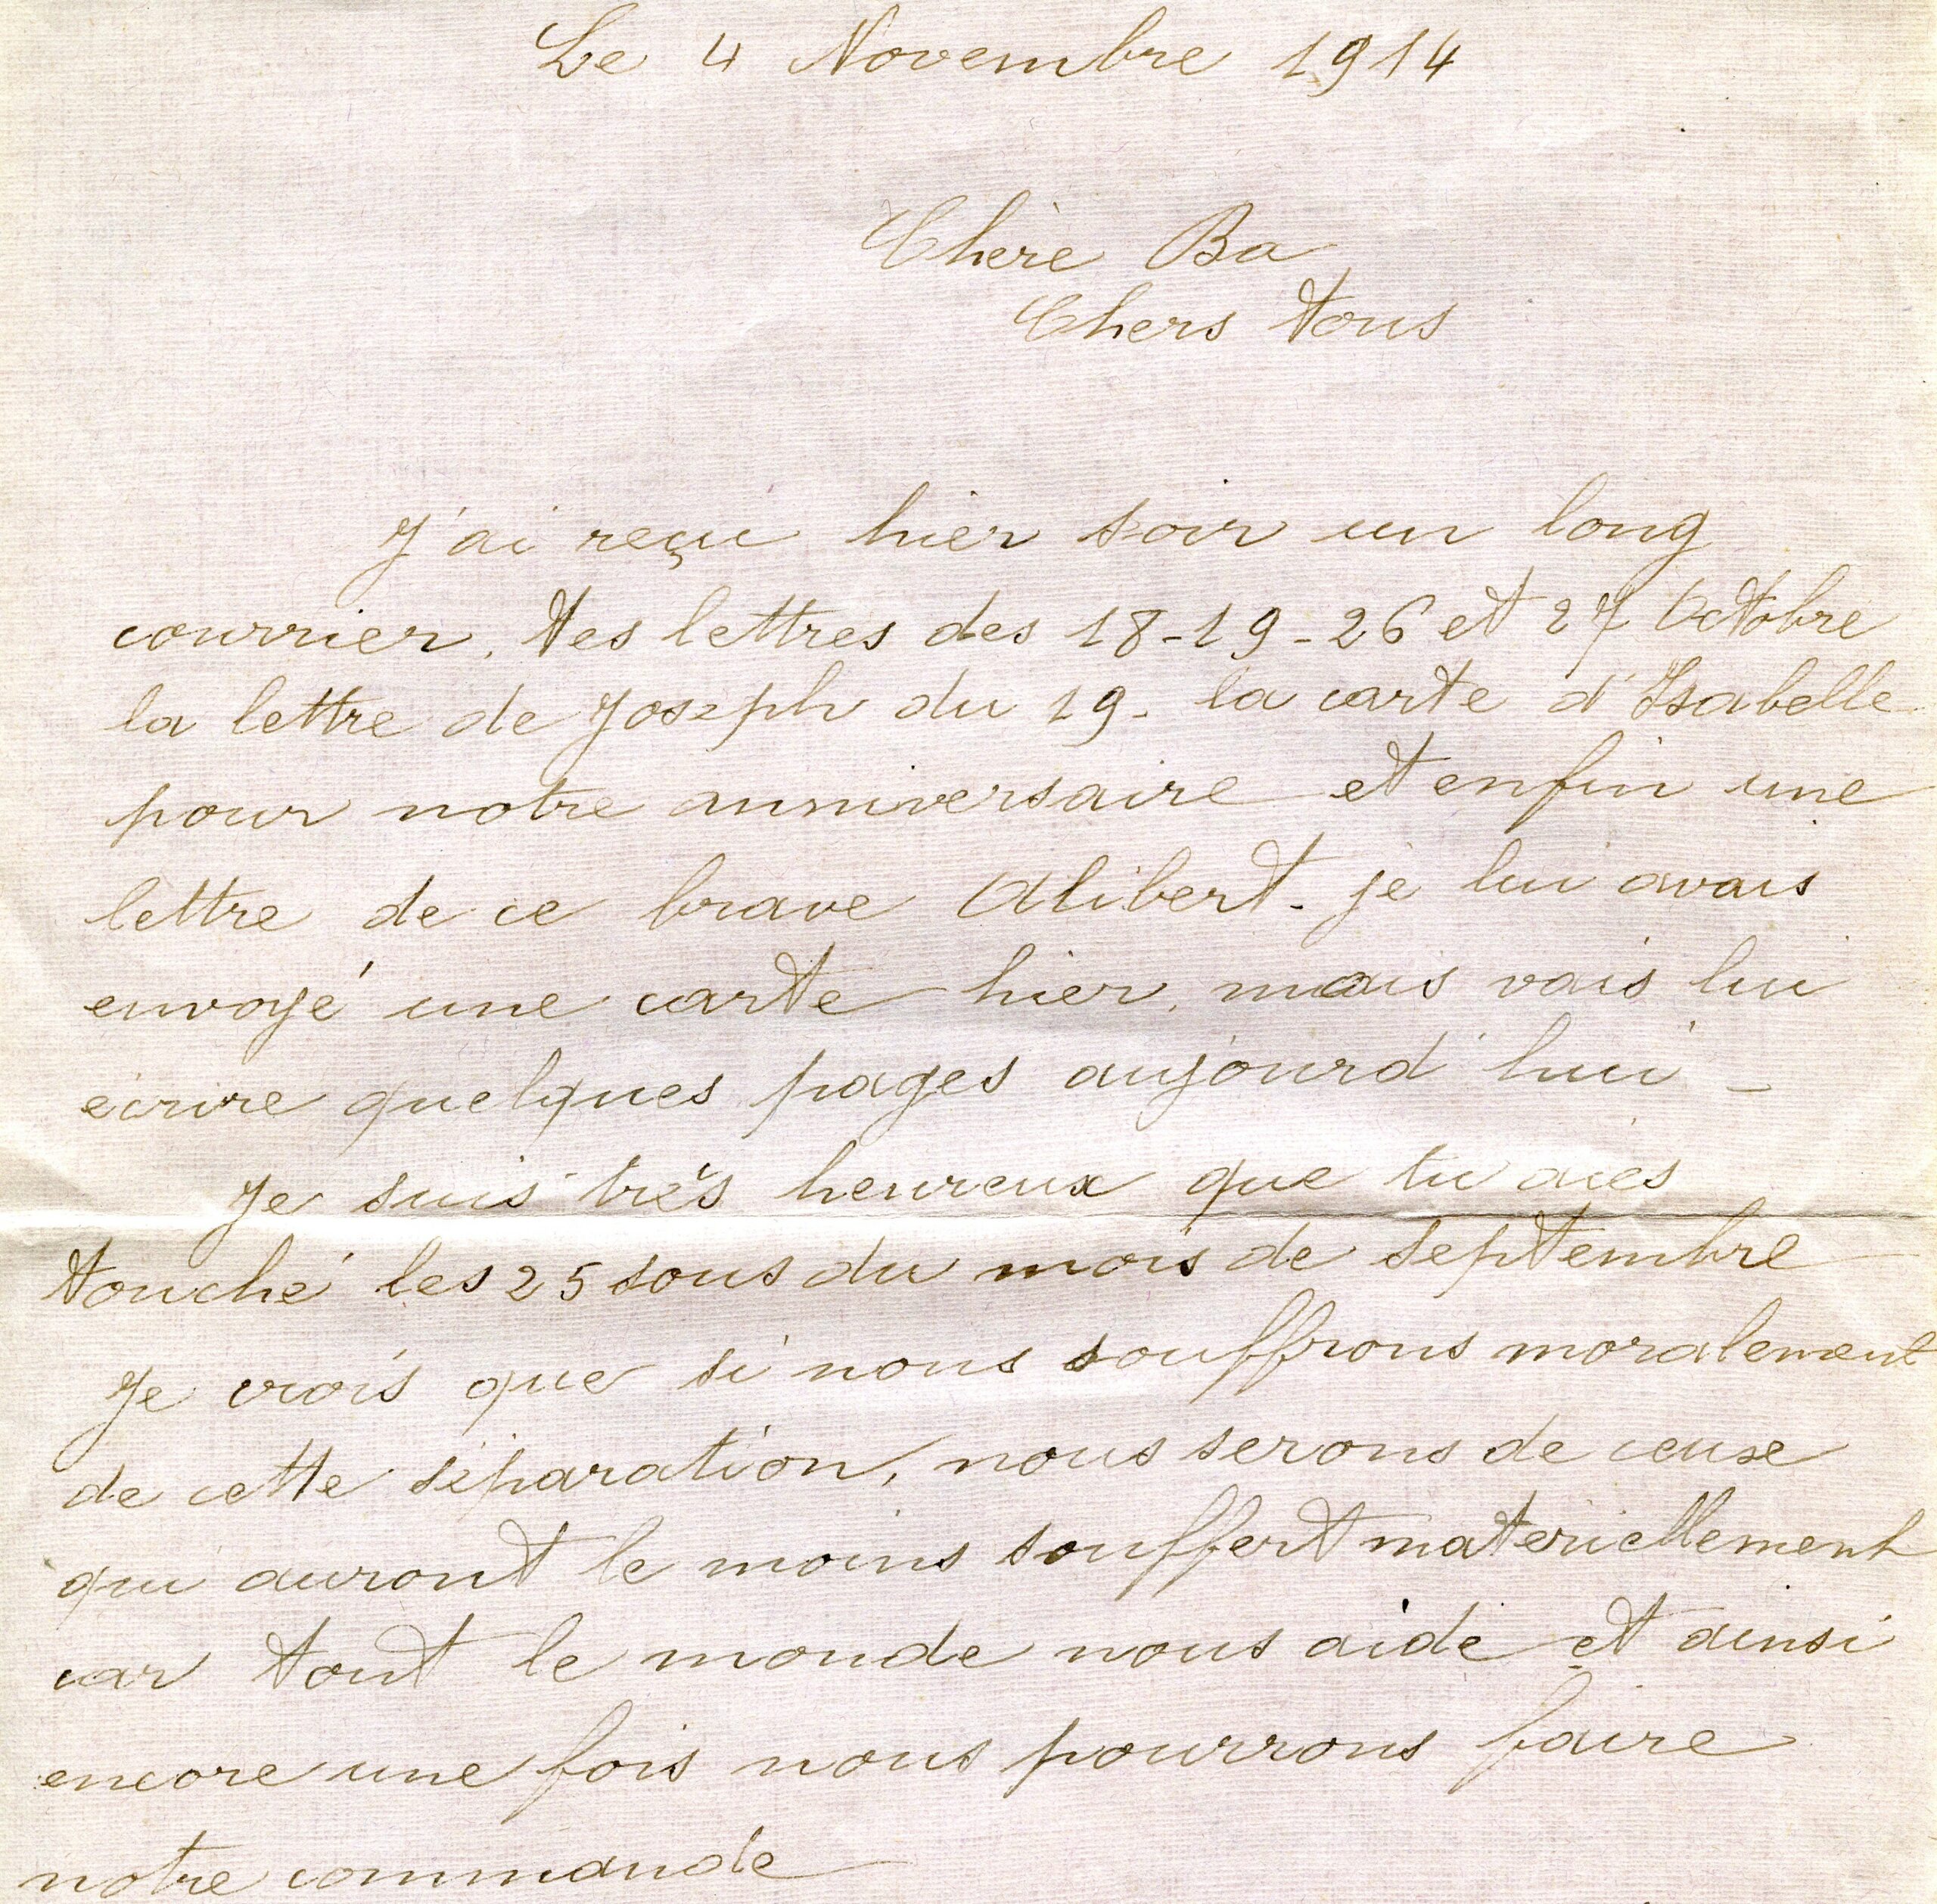 Le 4 Novembre 1914
Chère Ba
Chers tous
J'ai reçu hier soir un long
courrier. tes lettres des 18-19-26 et 27 Octobre
la lettre de Joseph du 19- la carte d'Isabelle
pour notre anniversaire et enfin une
lettre de ce brave Alibert- je lui avais
envoyé une carte hier, mais vais lui
écrire quelques pages aujourd'hui -
Je suis très heureux que tu aies
touché les 25 sous du mois de septembre
Je crois que si nous souffrons moralement
de cette séparation, nous serons de ceux
qui auront le moins souffert materiellement
car tout le monde nous aide et ainsi
encore une fois nous pourrons faire
notre commande